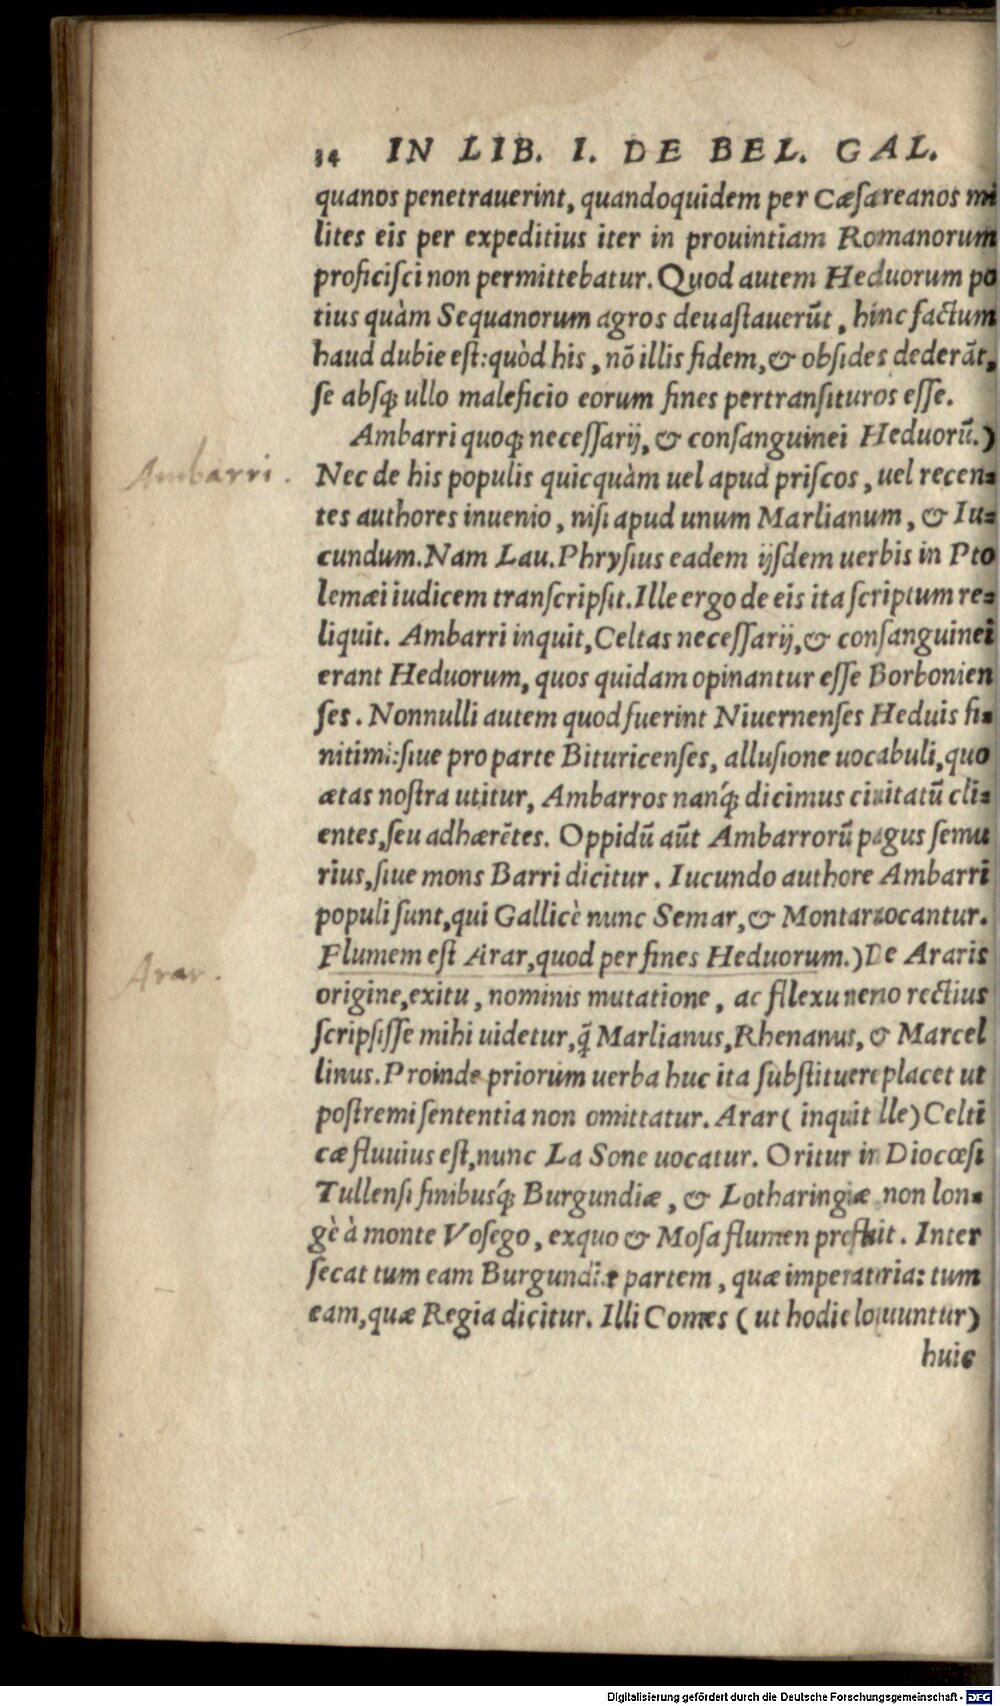 34 IN LIB. I. DE BEL. GAL.
quanos penetrauerint, quandoquidem per Cæſareanos mi
lites eis per expeditius iter in prouintiam Romanorum
proficiſci non permittebatur. Quod autem Heduorum po
tius quàm Sequanorum agros deuaſtauerūt, hinc factum
haud dubie eſt: quòd his, nō illis fidem, & obſides dederāt,
ſe abſq; ullo maleficio eorum fines pertranſituros eſſe.
Ambarri quoq; neceſſarij, & conſanguinei Heduorū.)
Ambarri.
Nec de his populis quicquàm uel apud priſcos, uel recen=
tes authores inuenio, niſi apud unum Marlianum, & Iu=
cundum. Nam Lau. Phryſius eadem ijſdem uerbis in Pto
lemæi iudicem tranſcripſit. Ille ergo de eis ita ſcriptum re=
liquit. Ambarri inquit, Celtas neceſſarij, & conſanguinei
erant Heduorum, quos quidam opinantur eſſe Borbonien
ſes. Nonnulli autem quod fuerint Niuernenſes Heduis fi=
nitimi: ſiue pro parte Bituricenſes, alluſione uocabuli, quo
ætas noſtra utitur, Ambarros nanq́; dicimus ciuitatū cli=
entes, ſeu adhærētes. Oppidū aūt Ambarrorū pagus ſemu
rius, ſiue mons Barri dicitur. Iucundo authore Ambarri
populi ſunt, qui Gallicè nunc Semar, & Montar uocantur.
Flumem eſt Arar, quod per fines Heduorum.) De Araris
Arar.
origine, exitu, nominis mutatione, ac fllexu nemo rectius
ſcripſiſſe mihi uidetur, q̄ Marlianus, Rhenanus, & Marcel
linus. Proinde priorum uerba huc ita ſubſtituere placet ut
poſtremi ſententia non omittatur. Arar ( inquit ille) Celti
cæ fluuius eſt, nunc La Sone uocatur. Oritur in Diocœſi
Tullenſi finibusq́; Burgundiæ, & Lotharingiæ non lon=
gè à monte Voſego, ex quo & Moſa flumen profluit. Inter
ſecat tum eam Burgundiæ partem, quæ imperatoria: tum
eam, quæ Regia dicitur. Illi Comes ( ut hodie loquuntur)
huic
Digitalisierung gefördert durch die Deutsche Forschungsgemeinschaft - DFG